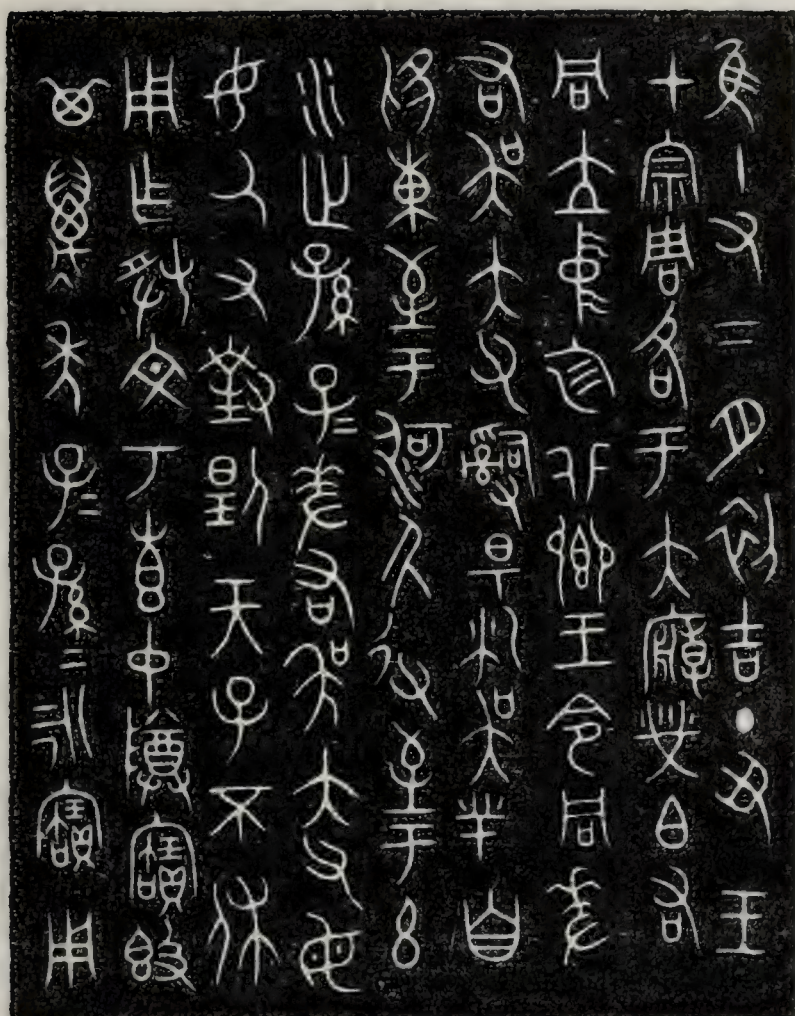 隹十又二月初吉丁丑王
才宗周各于大廟𤇾白右
同立中廷北鄉王令同左
右吳大父𤔲昜林吳牧自
淲東至于河氒逆至于玄
水世孫孫子子左右吳大父毋
女又對揚天子休
用乍朕文丁叀中尊寶簋
其萬年子子孫孫永寶用